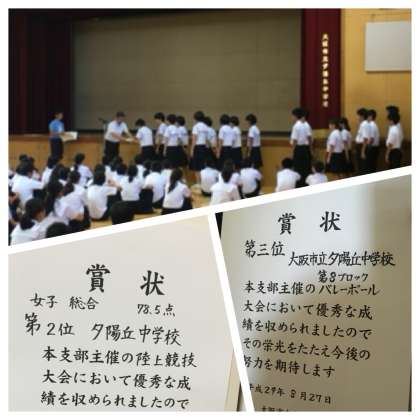 大阪市立夕陽丘中学校
賞状
女子 総合 78.5点
第2位 夕陽丘中学校
本支部主催の陸上競技
大会において優秀な成
績を収められましたので
賞状
第三位 大阪市立夕陽丘中学校
第8ブロック
本支部主催のバレーボール
大会において優秀な成
績を収められましたので
その栄光をたたえ今後の
努力を期待します
平成29年 8月27日